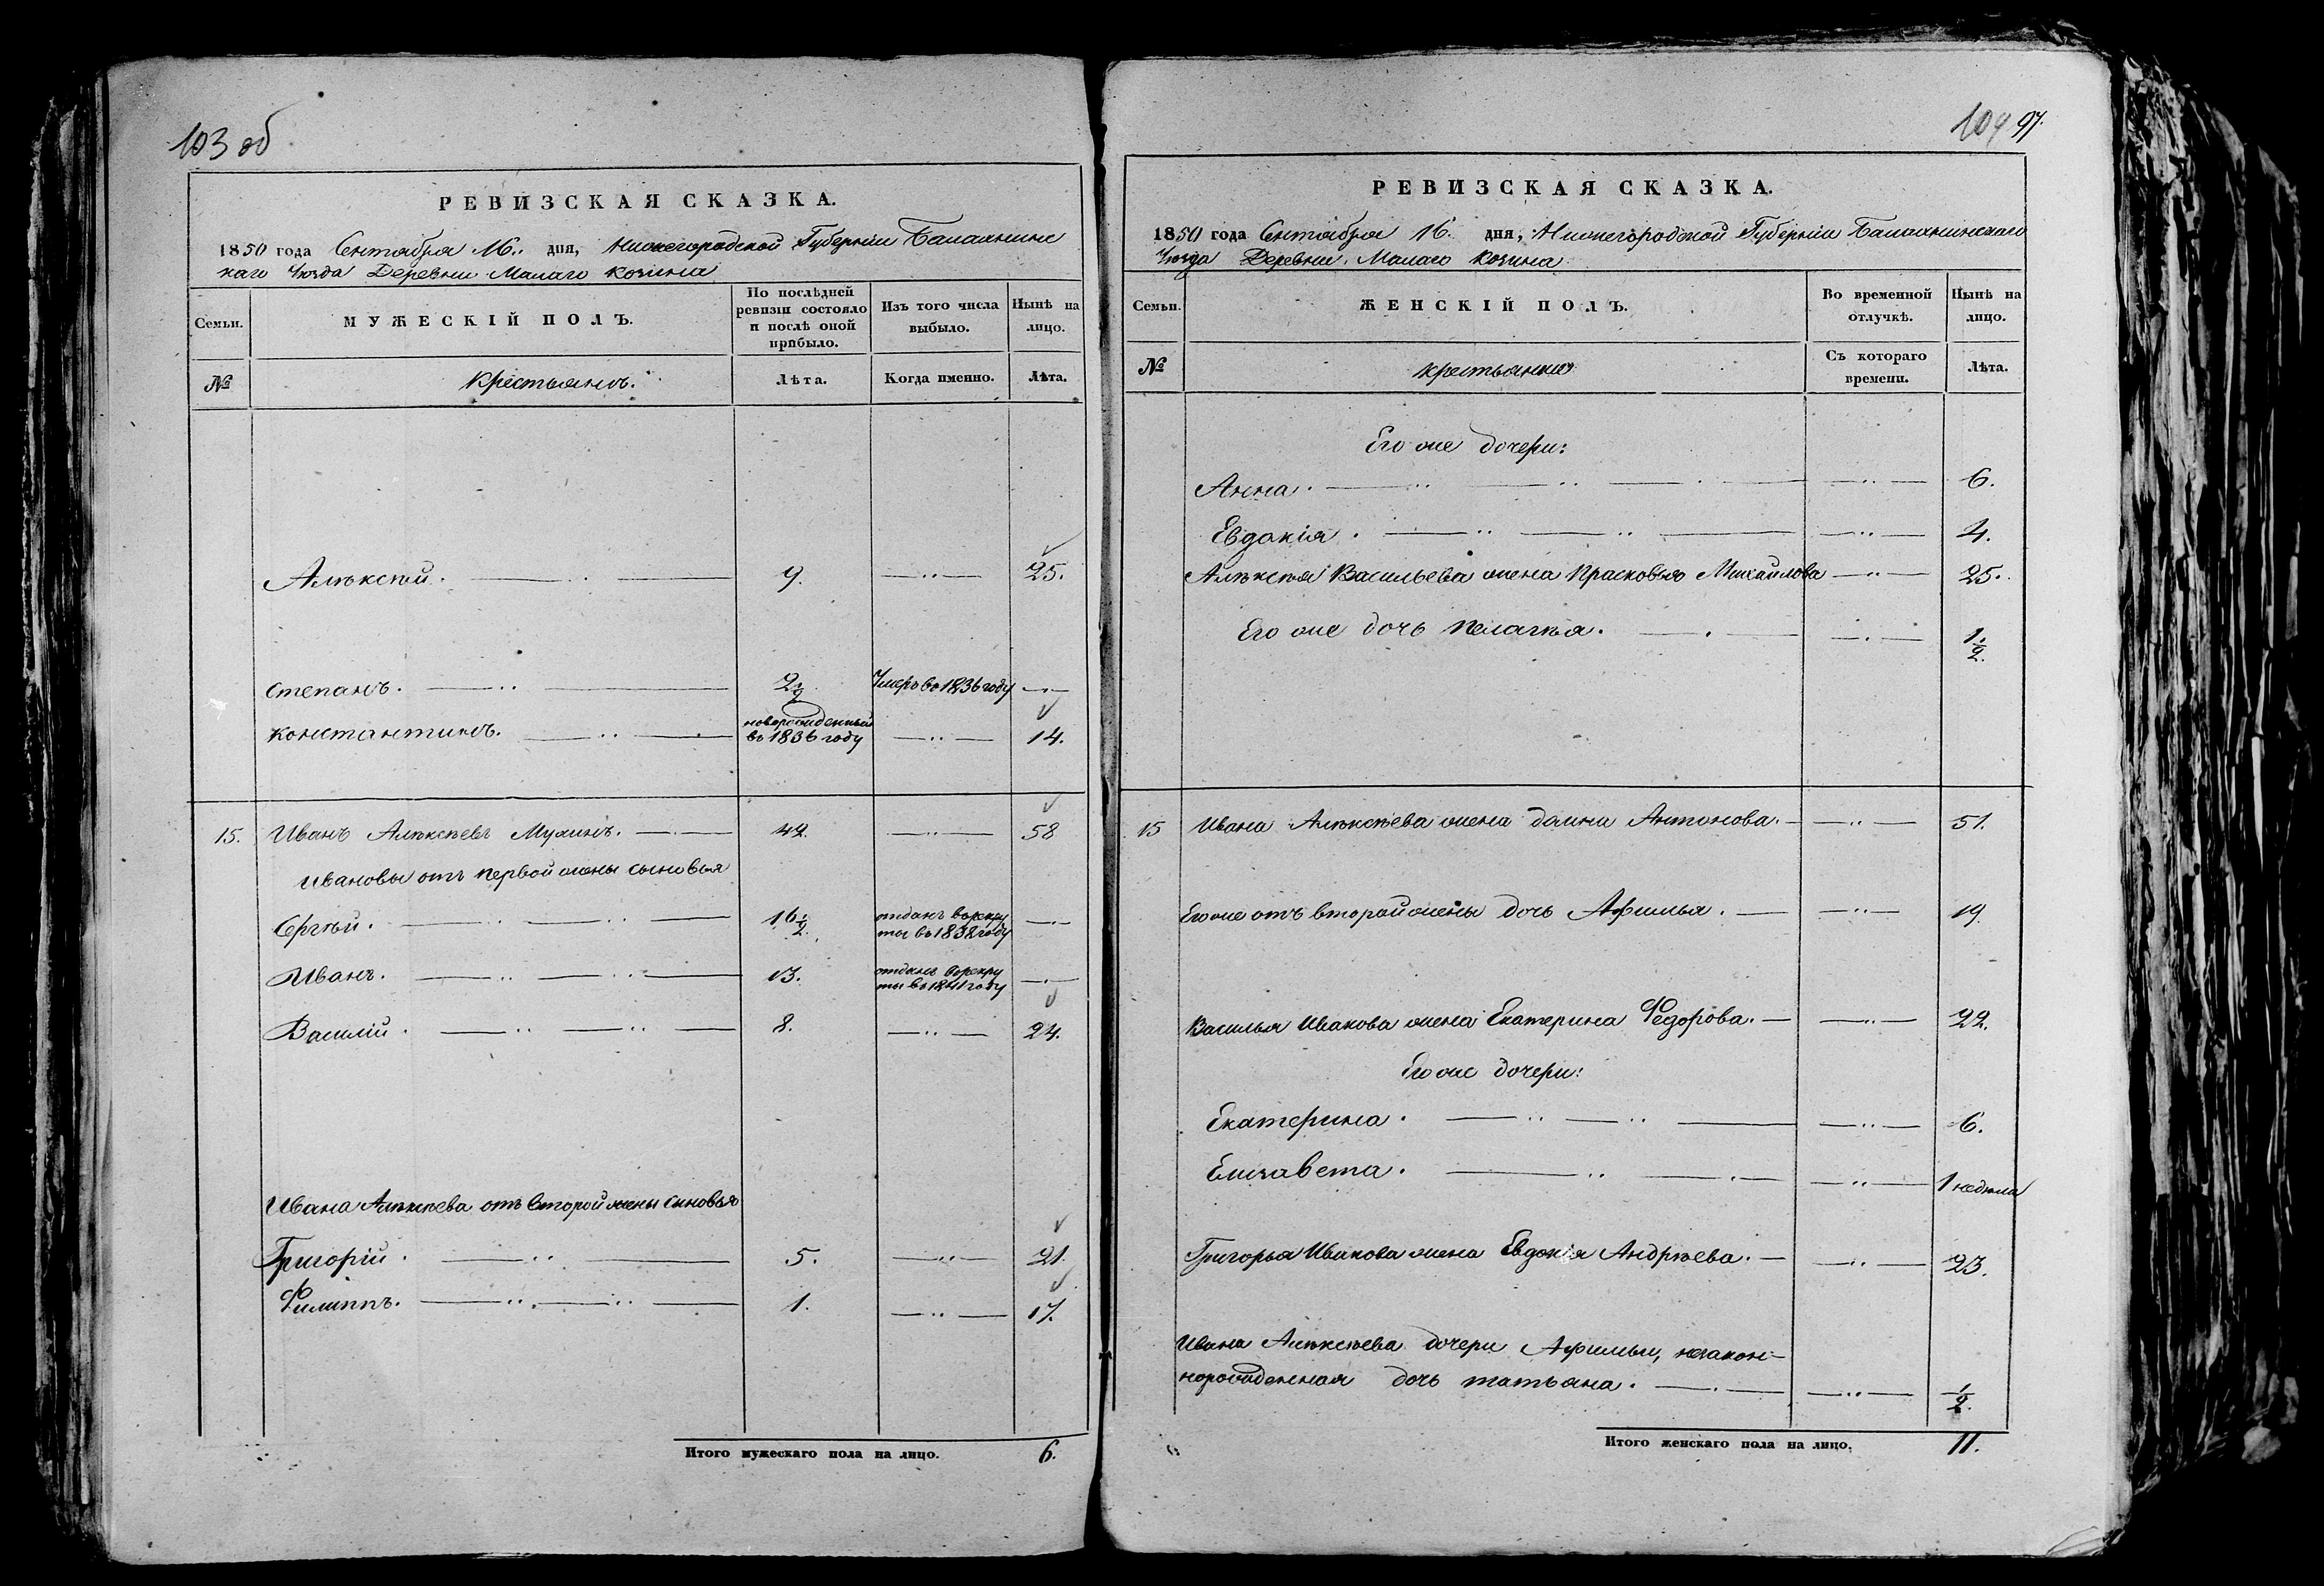 103 об
РЕВИЗСКАЯ СКАЗКА.
1850 года Сентября 16. дня, Нижегородской Губернии Балахнинс
каго Уезда Деревни Малаго Козина
Семьи.
МУЖЕСКІЙ ПОЛЪ.
По послѣдней ревизіи состояло и послѣ оной прибыло.
Изъ того числа выбыло.
Нынѣ на лицо.
№
Крестьянъ.
Лѣта.
Когда именно.
Лѣта.
Алѣксѣй. 9. 25.
Степанъ. 2 1/2 Умеръ во 1836 году
Константинъ. новорожденный во 1836 году 14.
15. Иванъ Алѣксѣевъ Мухинъ. 42. 58
Ивановы отъ первой жены сыновья
Сергѣй. 16 1/2. отданъ врекру
ты въ 1838 году
Иванъ. 13. отданъ врекру
ты въ 1841 году
Василій. 8. 24.
Ивана Алѣксѣева отъ второй жены сыновья
Григорій. 5. 21.
Филиппъ. 1. 17.
Итого мужескаго пола на лицо. 6.
104 97.
РЕВИЗСКАЯ СКАЗКА.
1850 года Сентября 16. дня, Нижегородской Губерніи Балахнинскаго
Уезда Деревни. Малаго Козина
Семьи.
ЖЕНСКІЙ ПОЛЪ.
Во временной отлучкѣ.
Нынѣ на лицо.
№
крестьянки
Съ котораго времени.
Лѣта.
Его же дочери:
Анна. 6.
Евдокія. 4.
Алѣксѣя Васильева жена Прасковья Михайлова 25.
Его же дочь Пелагѣя. 1 1/2.
15 Ивана Алѣксѣева жена домна Антонова. 51.
Его же отъ второй жены дочь Афимья. 19
Василья Иванова жена Екатерина Федорова. 22.
Его же дочери:
Екатерина. 6.
Елизавета. 1 неделя
Григорья Иванова жена Евдокія Андрѣева. 23.
Ивана Алѣксѣева дочери Афимьи, незакон-
норожденная дочь татьяна. 1/2.
Итого женскаго пола на лицо. 11.